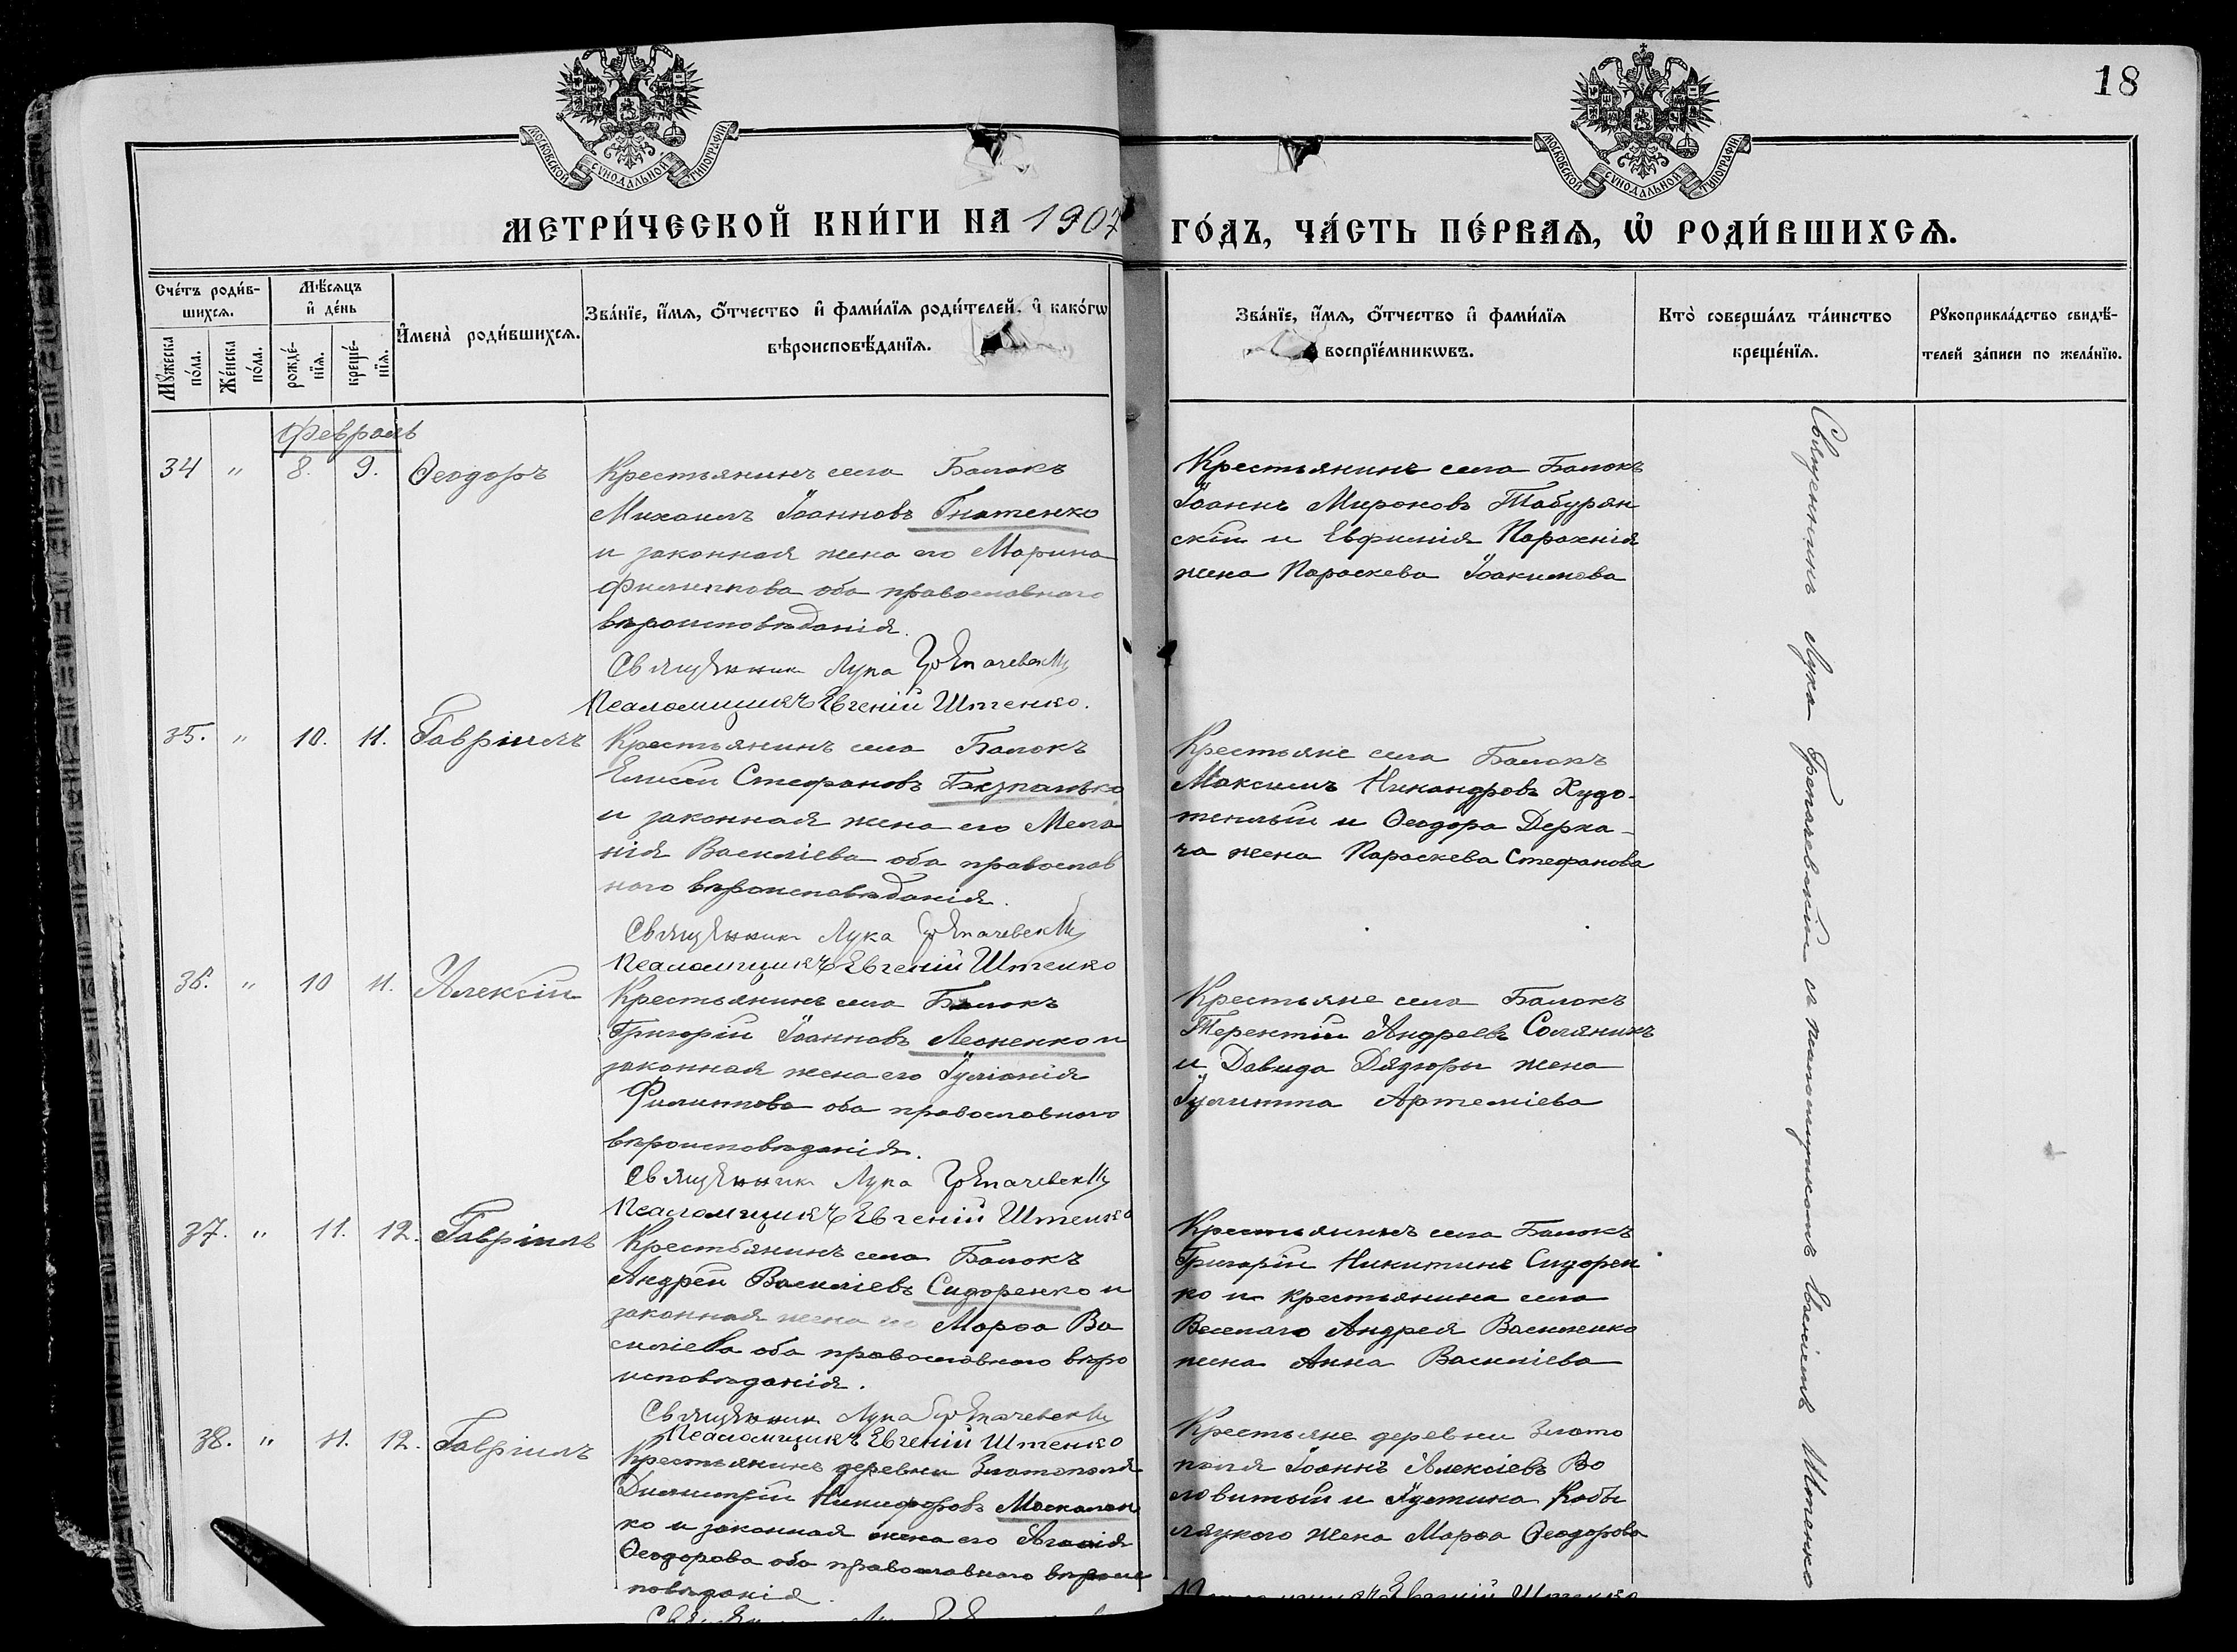 18
МОСКОВСКОЙ СѴНОДАЛЬНОЙ ТИПОГРАФІИ
МОСКОВСКОЙ СѴНОДАЛЬНОЙ ТИПОГРАФІИ
МЕТРИ́ЧЕСКОЙ КНИ́ГИ НА 1907
ГО́ДЪ, ЧА́СТЬ ПЕ́РВАѦ, Ѽ РОДИ́ВШИХСѦ.
Сче́тъ роди́в-
шихсѧ.
Мѣ́сѧцъ
и҆ де́нь
Мꙋ́жеска
по́ла.
Же́нска
по́ла.
рожде́-
нїѧ.
креще́-
нїѧ.
И҆мена̀ роди́вшихсѧ.
Зва́нїе, и҆́мѧ, ѻ҆́тчество и҆ фами́лїѧ роди́телей, и҆ како́гѡ
вѣроисповѣ́данїѧ.
Зва́нїе, и҆́мѧ, ѻ҆́тчество и҆ фами́лїѧ
воспрїе́мникѡвъ.
Кто̀ соверша́лъ та́инство
креще́нїѧ.
Рꙋкоприкла́дство свидѣ́-
телей за́писи по жела́нїю.
Февраль
34 " 8. 9. Ѳеодоръ
Крестьянинъ села Балокъ
Михаилъ Іоанновъ Гнатенко
и законная жена его Марина
Филиппова оба православнаго
вѣроисповѣданія.
Священник Лука
Псаломщикъ Евгеній Штенко.
Крестьянинъ села Балокъ
Іоаннъ Мироновъ Табурян
скій и Евфимія Парахнія
жена Параскева Іоакимова
35. " 10. 11. Гавріилъ
Крестьянинъ села Балокъ
Елисей Стефановъ Безпалько
и законная жена его Мела
нія Василіева оба православ
наго вѣроисповѣданія.
Священник Лука
Псаломщикъ Евгеній Штенко
Крестьяне села Балокъ
Максимъ Никандровъ Худо-
теплый и Ѳеодора Дерка-
ча жена Параскева Стефанова
36. " 10 11. Алексій
Крестьянинъ села Балокъ
Григорій Іоанновъ Леоненко и
законная жена его Іуліанія
Филиппова оба православнаго
вѣроисповѣданія.
Священник Лука
Псаломщикъ Евгеній Штенко
Крестьяне села Балокъ
Терентій Андреевъ Соляникъ
и Давида Дядюры жена
Іулитта Артеміева
37. " 11. 12. Гавріилъ
Крестьянинъ села Балокъ
Андрей Василіевъ Сидоренко и
законная жена его Марѳа Ва
силіева оба православнаго вѣро
исповѣданія.
Священник Лука
Псаломщикъ Евгеній Штенко
Крестьянинъ села Балокъ
Григорій Никитинъ Сидорен
ко и крестьянина села
Веселаго Андрея Василенко
жена Анна Василіева
38. " 11. 12. Гавріилъ
Крестьянинъ деревни Златополя
Димитрій Никифоровъ Москален
ко и законная жена его Агафія
Ѳеодорова оба православнаго вѣроис
повѣданія.
Крестьяне деревни Злато
поля Іоаннъ Алексіевъ Во
ловитый и Іустина Кобы
ляцкого жена Марѳа Ѳеодорова
Псаломщикъ Евгеній Штенко
Священникъ Лука Грепачевскій съ псаломщикомъ Евгеніемъ Штенко